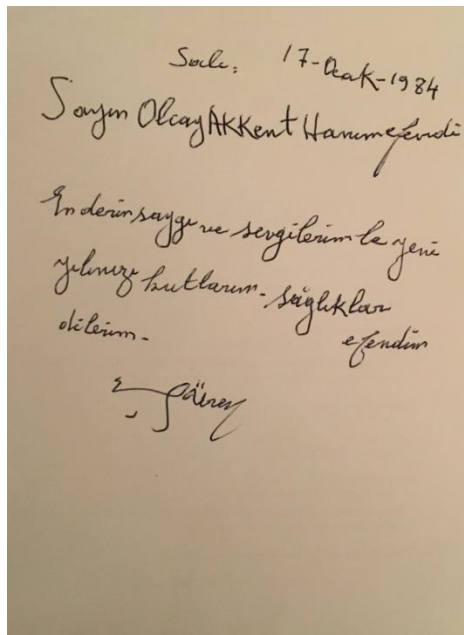 17-Ocak-1984
Sayın Olcay AKKent Hanımefendi
En derin saygı ve sevgilerimle yeni
yılınızı kutlarım- sağlıklar
dilerim- efendim